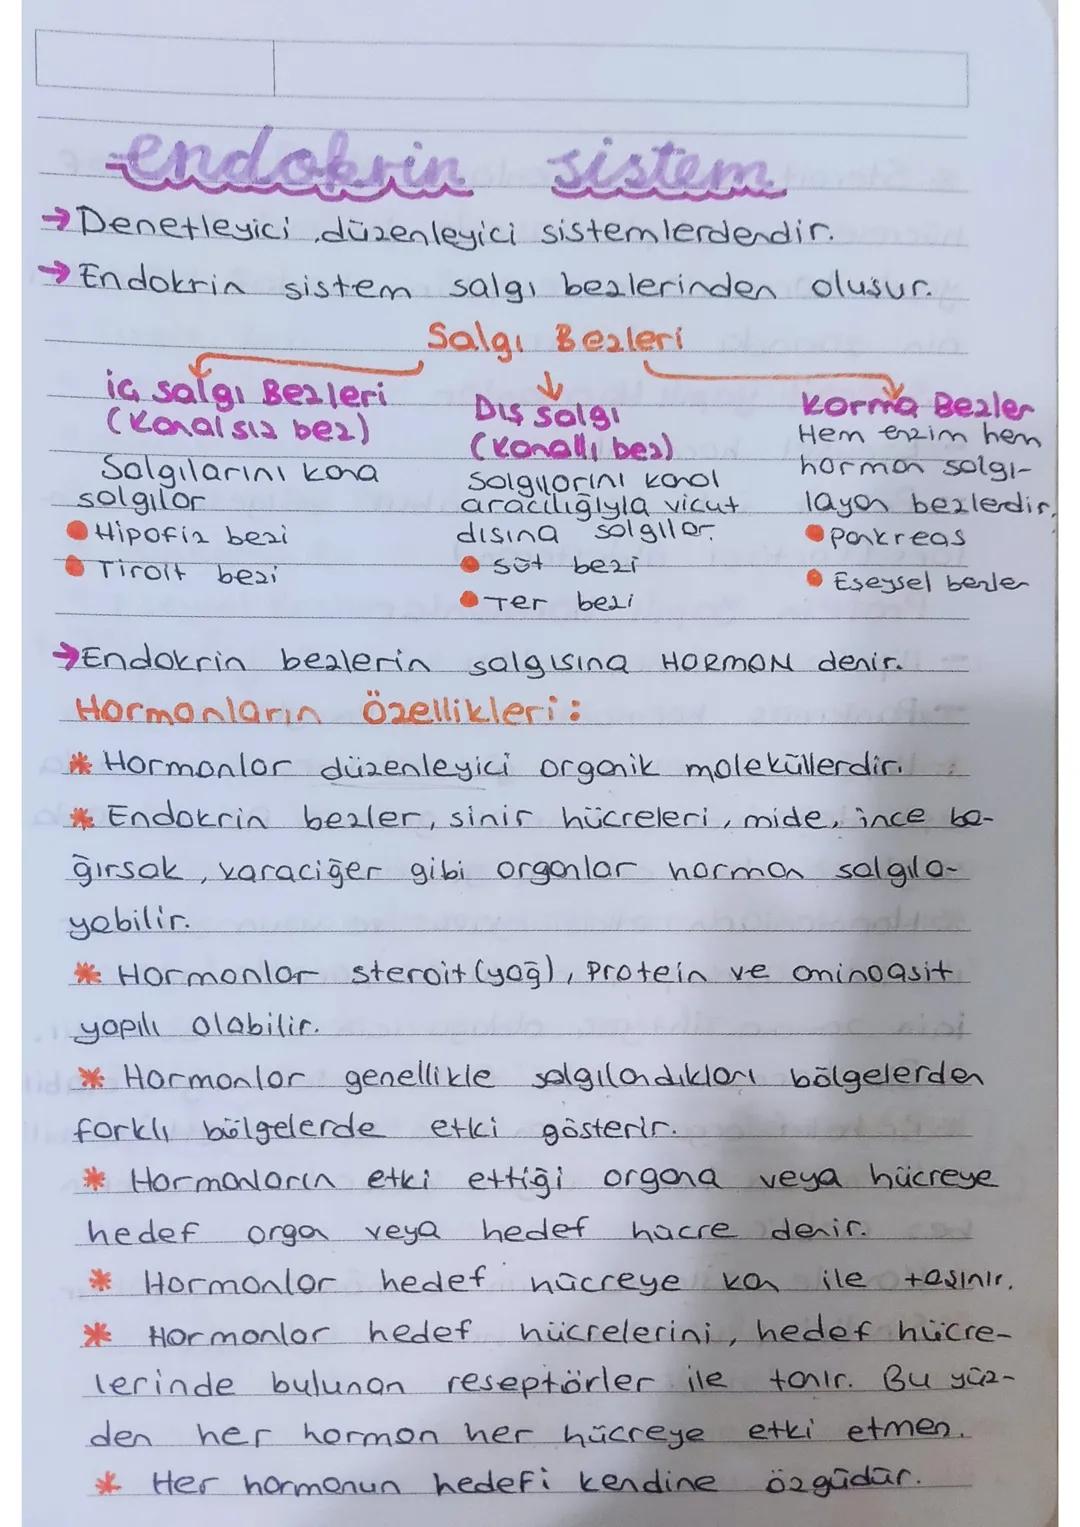 endokrin sistem
→ Denetleyici, düzenleyici sistemlerdendir.
→ Endokrin sistem salgı bezlerinden oluşur.
Salgı Bezleri
iç salgı Bezleri
(Kanalsız bez)
Salgılarını kana
salgılar
Hipofiz bezi
Tiroit bezi
Dış salgı
(Kanallı bez)
Salgılarını kanal
aracılığıyla vücut
dışına salgılar.
Süt bezi
Ter bezi
Karma Bezler
Hem enzim hem
hormon salgı-
layan bezlerdir.
Pankreas
Eşeysel bezler
→ Endokrin bezlerin salgısına HORMON denir.
Hormonların Özellikleri:
* Hormonlar düzenleyici organik moleküllerdir.
* Endokrin bezler, sinir hücreleri, mide, ince ba-
ğırsak, karaciğer gibi organlar hormon salgıla-
yabilir.
* Hormonlar steroit (yağ), Protein ve aminoasit
yapılı olabilir.
* Hormonlar genellikle salgılandıkları bölgelerden
farklı bölgelerde etki gösterir.
* Hormonların etki ettiği organa veya hücreye
hedef organ veya hedef hücre denir.
* Hormonlar hedef hücreye kan ile taşınır.
* Hormonlar hedef hücrelerini, hedef hücre-
lerinde bulunan reseptörler ile tanır. Bu yüz-
den her hormon her hücreye etki etmez.
* Her hormonun hedefi kendine özgüdür.